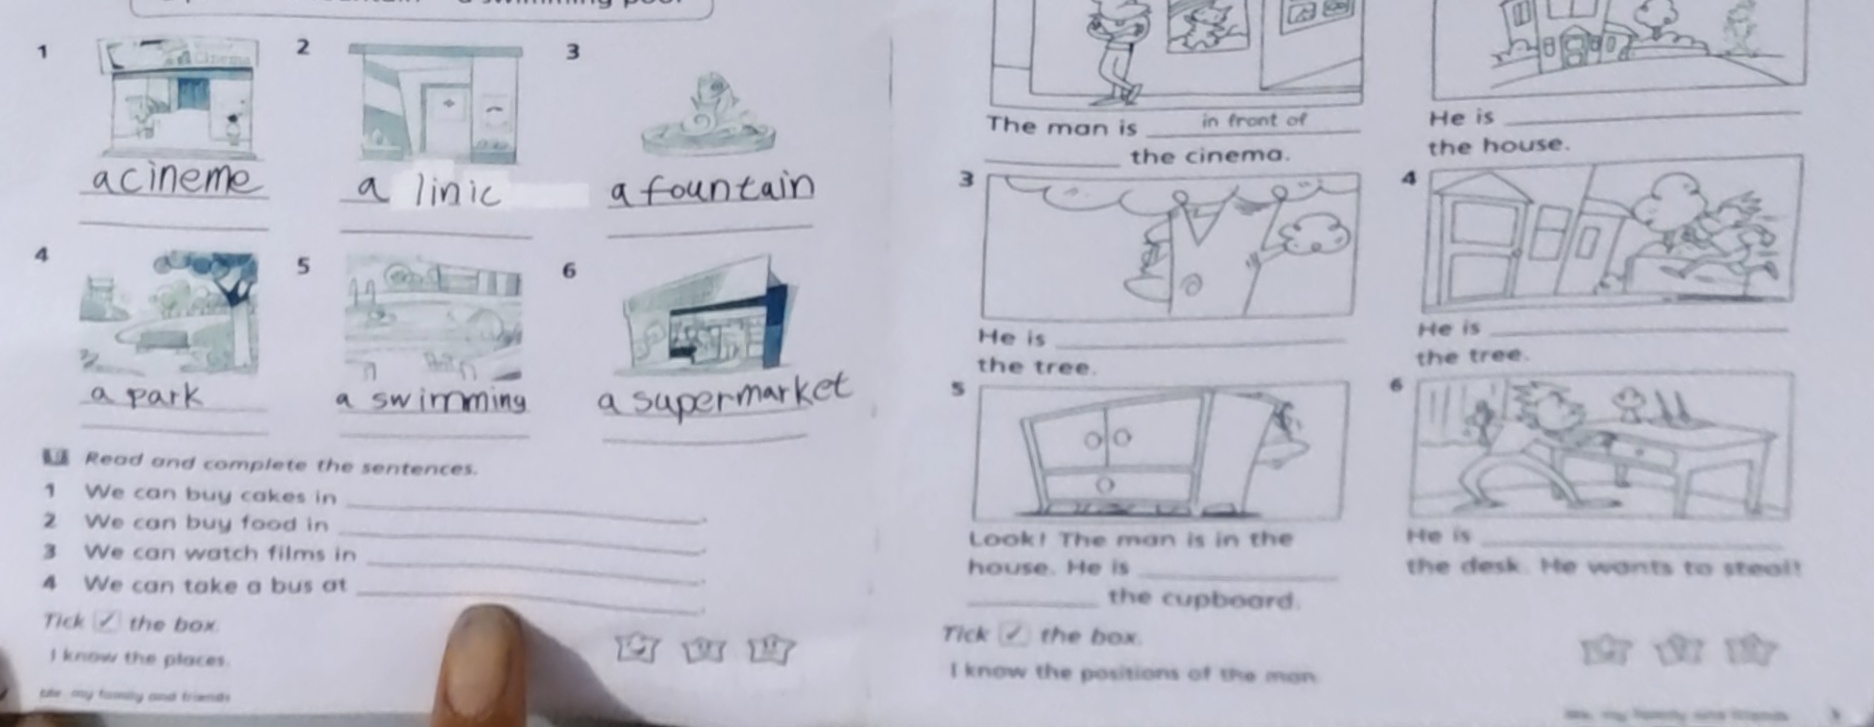 a swimming pool
1
Cinema
a cineme
2
a linic
3
a fountain
4
a park
5
a swimming
6
a supermarket
Read and complete the sentences.
1 We can buy cakes in
2 We can buy food in
3 We can watch films in
4 We can take a bus at
Tick ✓ the box.
I know the places.
Me, my family and friends
The man is in front of
the cinema.
He is
the house.
3
He is
the tree.
4
He is
the tree.
5
Look! The man is in the
house. He is
the cupboard.
6
He is
the desk. He wants to steal!
Tick ✓ the box.
I know the positions of the man
Me, my family and friends